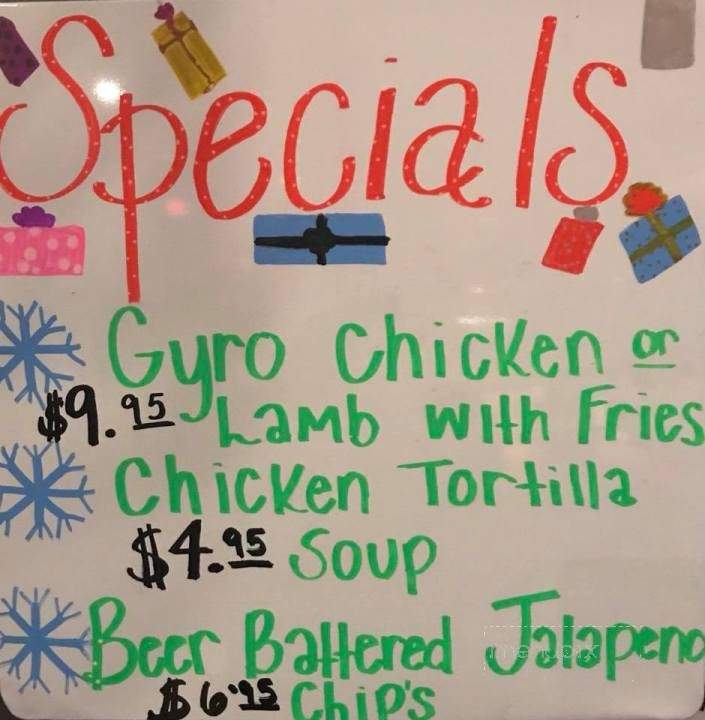 Specials
Gyro Chicken or
$9.95 Lamb with Fries
Chicken Tortilla
$4.95 Soup
Beer Battered Jalapeno
$6.95 Chip's
menupix